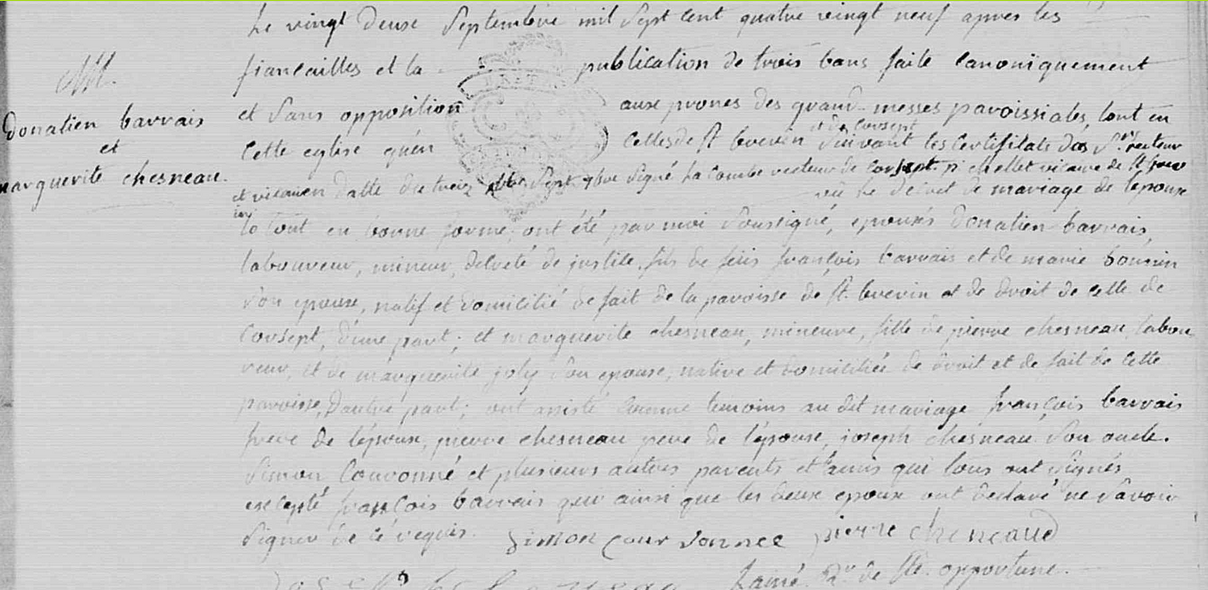 Le vingt deux Septembre mil Sept cent quatre vingt neuf apres les
fiancailles et la publication de trois bans faite canoniquement
et Sans opposition aux prones des grand-messes paroissiales, tant en
M.
Donatien barrais
et
marguerite chesneau.
et de Corsept
cette eglise qu'en celle de St breverin suivant les Certificats des Srs recteur
et vicaire en datte du treize Sept signé La Combe recteur de Corsept, vicaire de St
vu le decret de mariage de l'epoux
le tout en bonne forme, ont été par moi Soussigné, epousés Donatien barrais,
laboureur, mineur, décreté de justice, fils de feus françois barrais et de marie
Son epouse, natif et domicilié de fait de la paroisse de St. breverin et de droit de celle de
Corsept, d'une part; et marguerite chesneau, mineure, fille de pierre chesneau, labou
reur, et de marguerite joly Son epouse, native et domiciliée de droit et de fait de cette
paroisse, d'autre part; ont assisté comme temoins au dit mariage françois barrais
frere de l'époux, pierre chesneau pere de l'épouse, joseph chesneau Son oncle.
Simon Couronné et plusieurs autres parents et amis qui tous ont Signés
excepté françois barrais qui ainsi que les deux epoux ont declaré ne Savoir
Signer de ce requis. Simon Cour donnee pierre cheneaud
Lainé. Rr. de Ste. opportune.